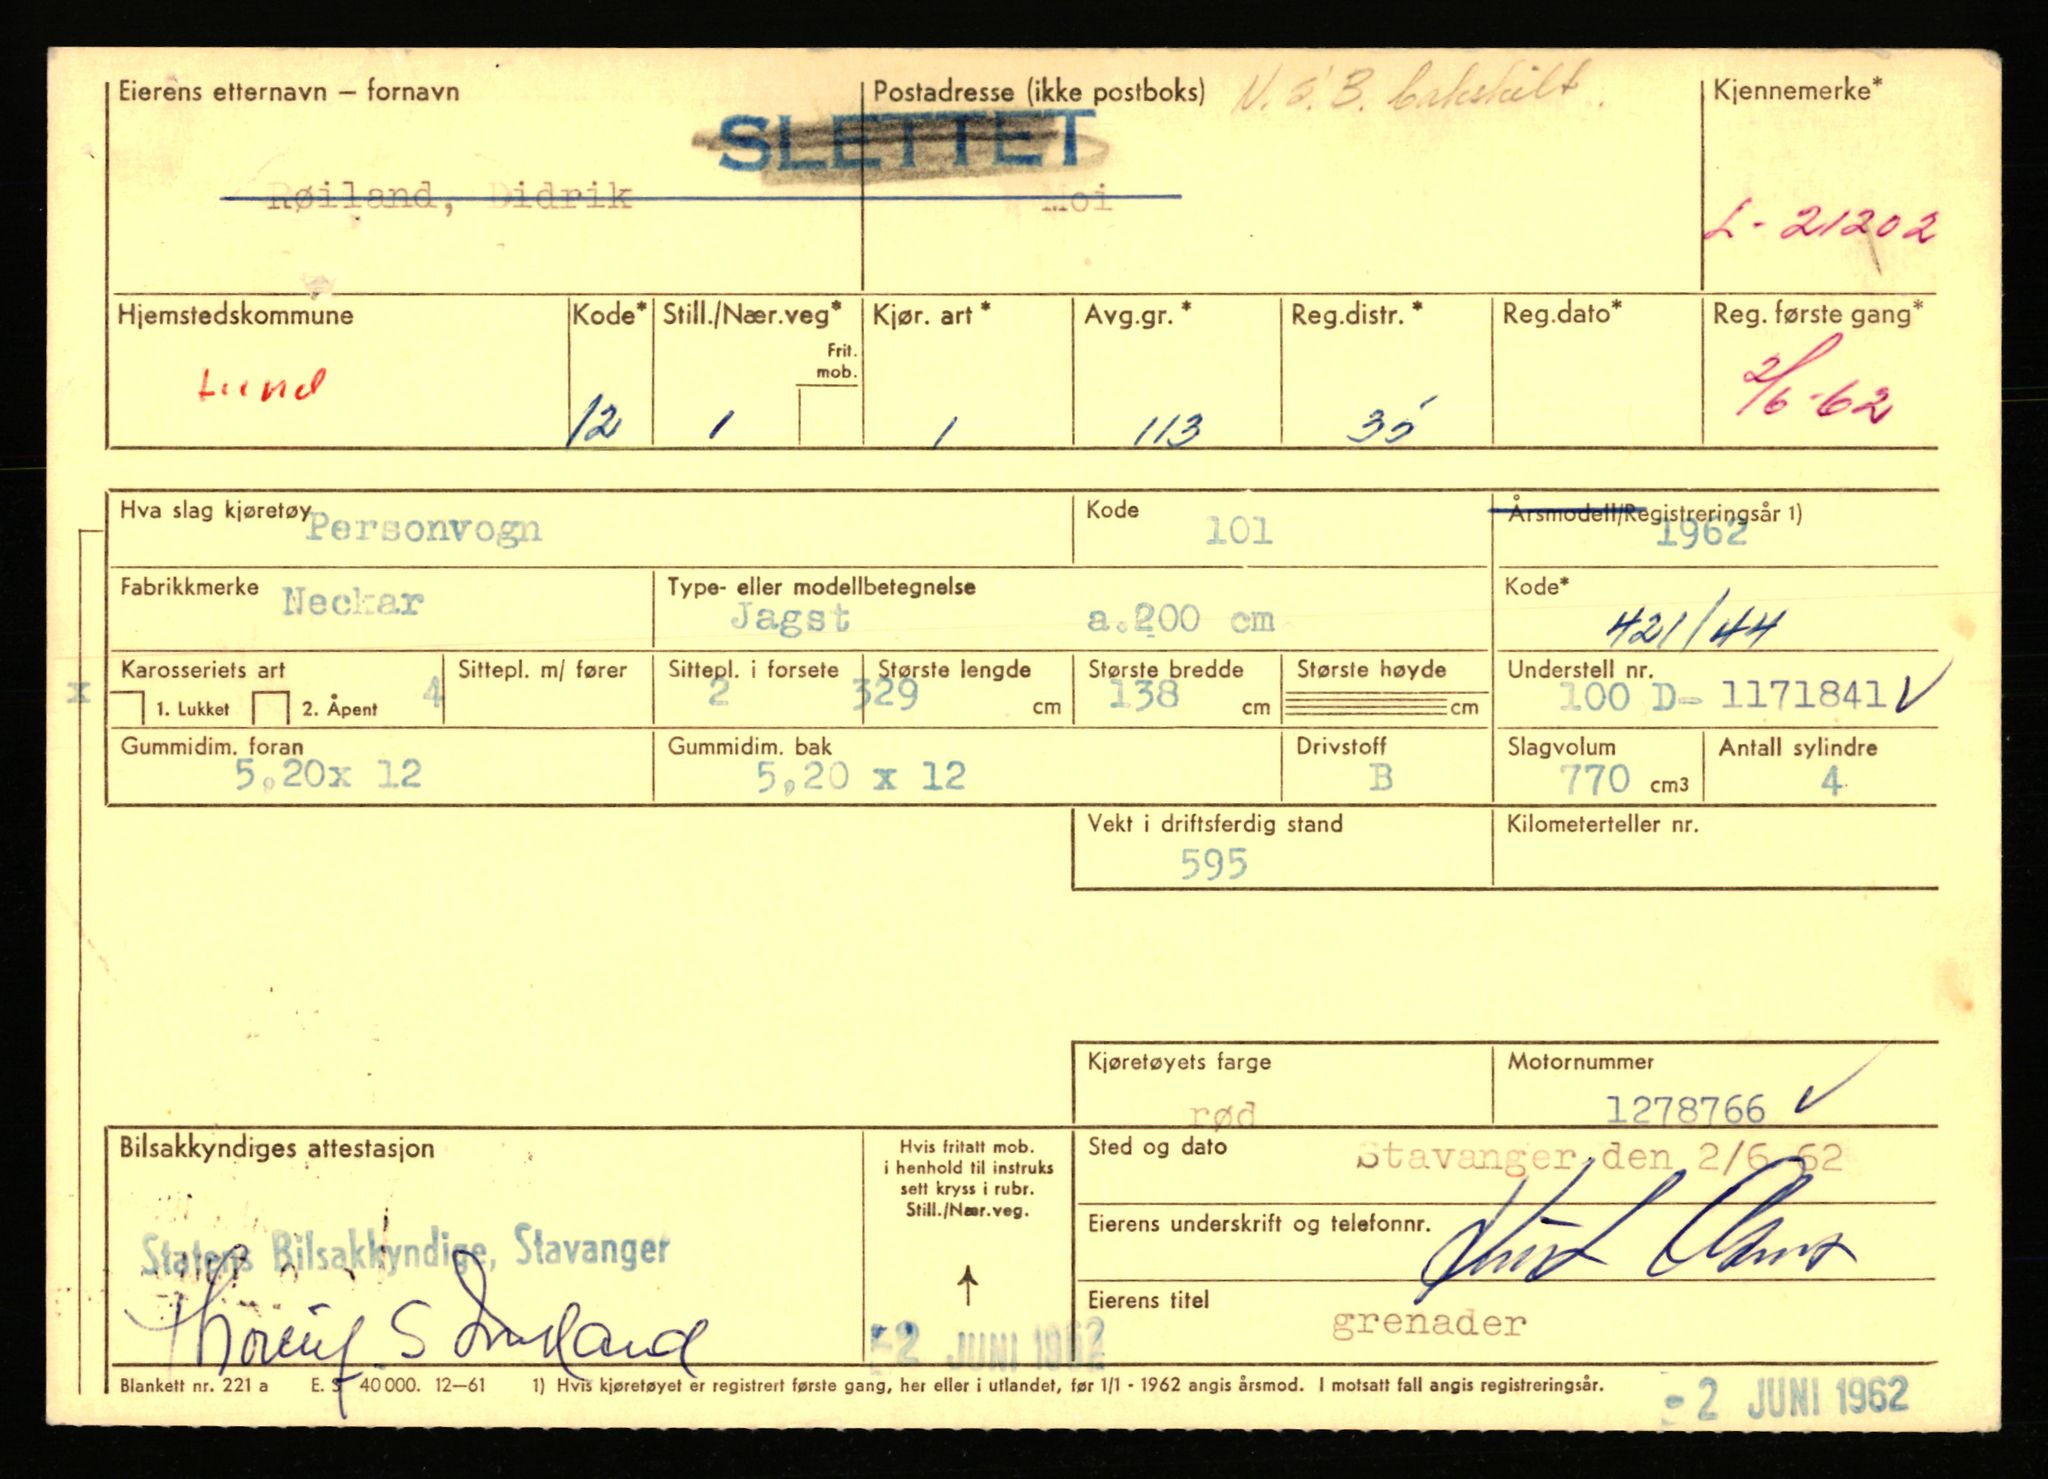 Eierens etternavn – fornavn
Postadresse (ikke postboks)
N.S.B. bakskilt.
Kjennemerke*
SLETTET
Røiland, Didrik
Moi
L-21202
Hjemstedskommune
Kode*
Still./Nær.veg*
Kjør. art*
Avg.gr.*
Reg.distr.*
Reg.dato*
Reg. første gang*
Frit.
mob.
Lund
12
1
1
113
35
2/6-62
Hva slag kjøretøy
Personvogn
Kode
101
Årsmodell/Registreringsår 1)
1962
Fabrikkmerke
Neckar
Type- eller modellbetegnelse
Jagst a.200 cm
Kode*
421/44
Karosseriets art
Sittepl. m/ fører
Sittepl. i forsete
Største lengde
Største bredde
Største høyde
Understell nr.
x
1. Lukket
2. Åpent
4
2
329 cm
138 cm
cm
100 D- 1171841
Gummidim. foran
Gummidim. bak
Drivstoff
Slagvolum
Antall sylindre
5,20x 12
5,20 x 12
B
770 cm3
4
Vekt i driftsferdig stand
Kilometerteller nr.
595
Kjøretøyets farge
Motornummer
rød
1278766
Bilsakkyndiges attestasjon
Hvis fritatt mob.
i henhold til instruks
sett kryss i rubr.
Still./Nær.veg.
Sted og dato
Stavanger, den 2/6 62
Eierens underskrift og telefonnr.
Statens Bilsakkyndige, Stavanger
Eierens titel
grenader
-2 JUNI 1962
Blankett nr. 221 a E. S. 40 000. 12—61 1) Hvis kjøretøyet er registrert første gang, her eller i utlandet, før 1/1 - 1962 angis årsmod. I motsatt fall angis registreringsår.
-2 JUNI 1962